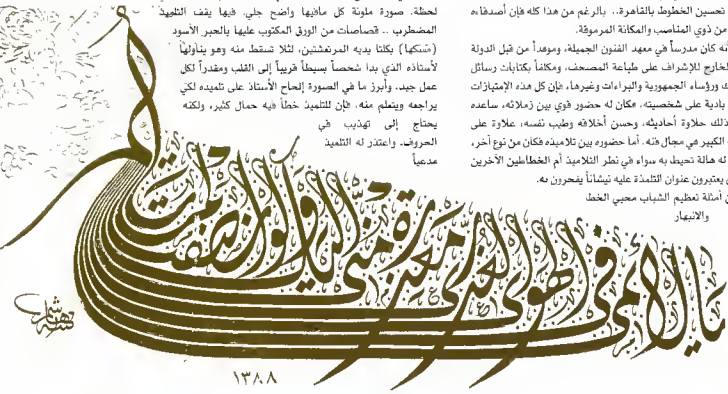 تحسين الخطوط بالقاهرة.. بالرغم من هذا كله فإن أصدقاءه
من ذوي المناصب والمكانة المرموقة.
أنه كان مدرساً في معهد الفنون الجميلة، وموفداً من قبل الدولة
للخارج للإشراف على طباعة المصحف. ومكلفاً بكتابات رسائل
ورؤساء الجمهورية والبراءات وغيرها، فإن كل هذه الإمتيازات
بادية على شخصيته. فكان له حضور قوي بين زملائه، ساعده
ذلك حلاوة أحاديثه، وحسن أخلاقه وطيب نفسه، علاوة على
الكبير في مجال فنه. أما حضوره بين تلاميذه فكان من نوع آخر،
له هالة تحيط به سواء في نظر التلاميذ أم الخطاطين الآخرين
يعتبرون عنوان التلمذة عليه نيشاناً يفخرون به.
أمثلة تعظيم الشباب محبي الخط
والانبهار
لحظة. صورة ملونة كل مافيها واضح جلي. فيها يقف التلميذ
المضطرب .. قصاصات من الورق المكتوب عليها بالحبر الأسود
(مَسَكها) بكلتا يديه المرتعشتين، لئلا تسقط منه وهو يناولها
لأستاذه الذي بدا شخصاً بسيطاً قريباً إلى القلب ومقدراً لكل
عمل جيد. وأبرز ما في الصورة إلحاح الأستاذ على تلميذه لكي
يراجعه ويتعلم منه. فإن للتلميذ خطاً فيه جمال كثير، ولكنه
يحتاج إلى تهذيب في
الحروف. واعتذر له التلميذ
مدعياً
يا لائمي في الهوى العذري معذرة مني إليك ولو أنصفت لم تلم
١٣٨٨